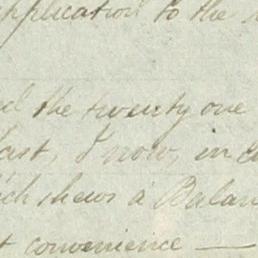 application to the
the twenty one
last, I now, in
shews a Balan
convenience —